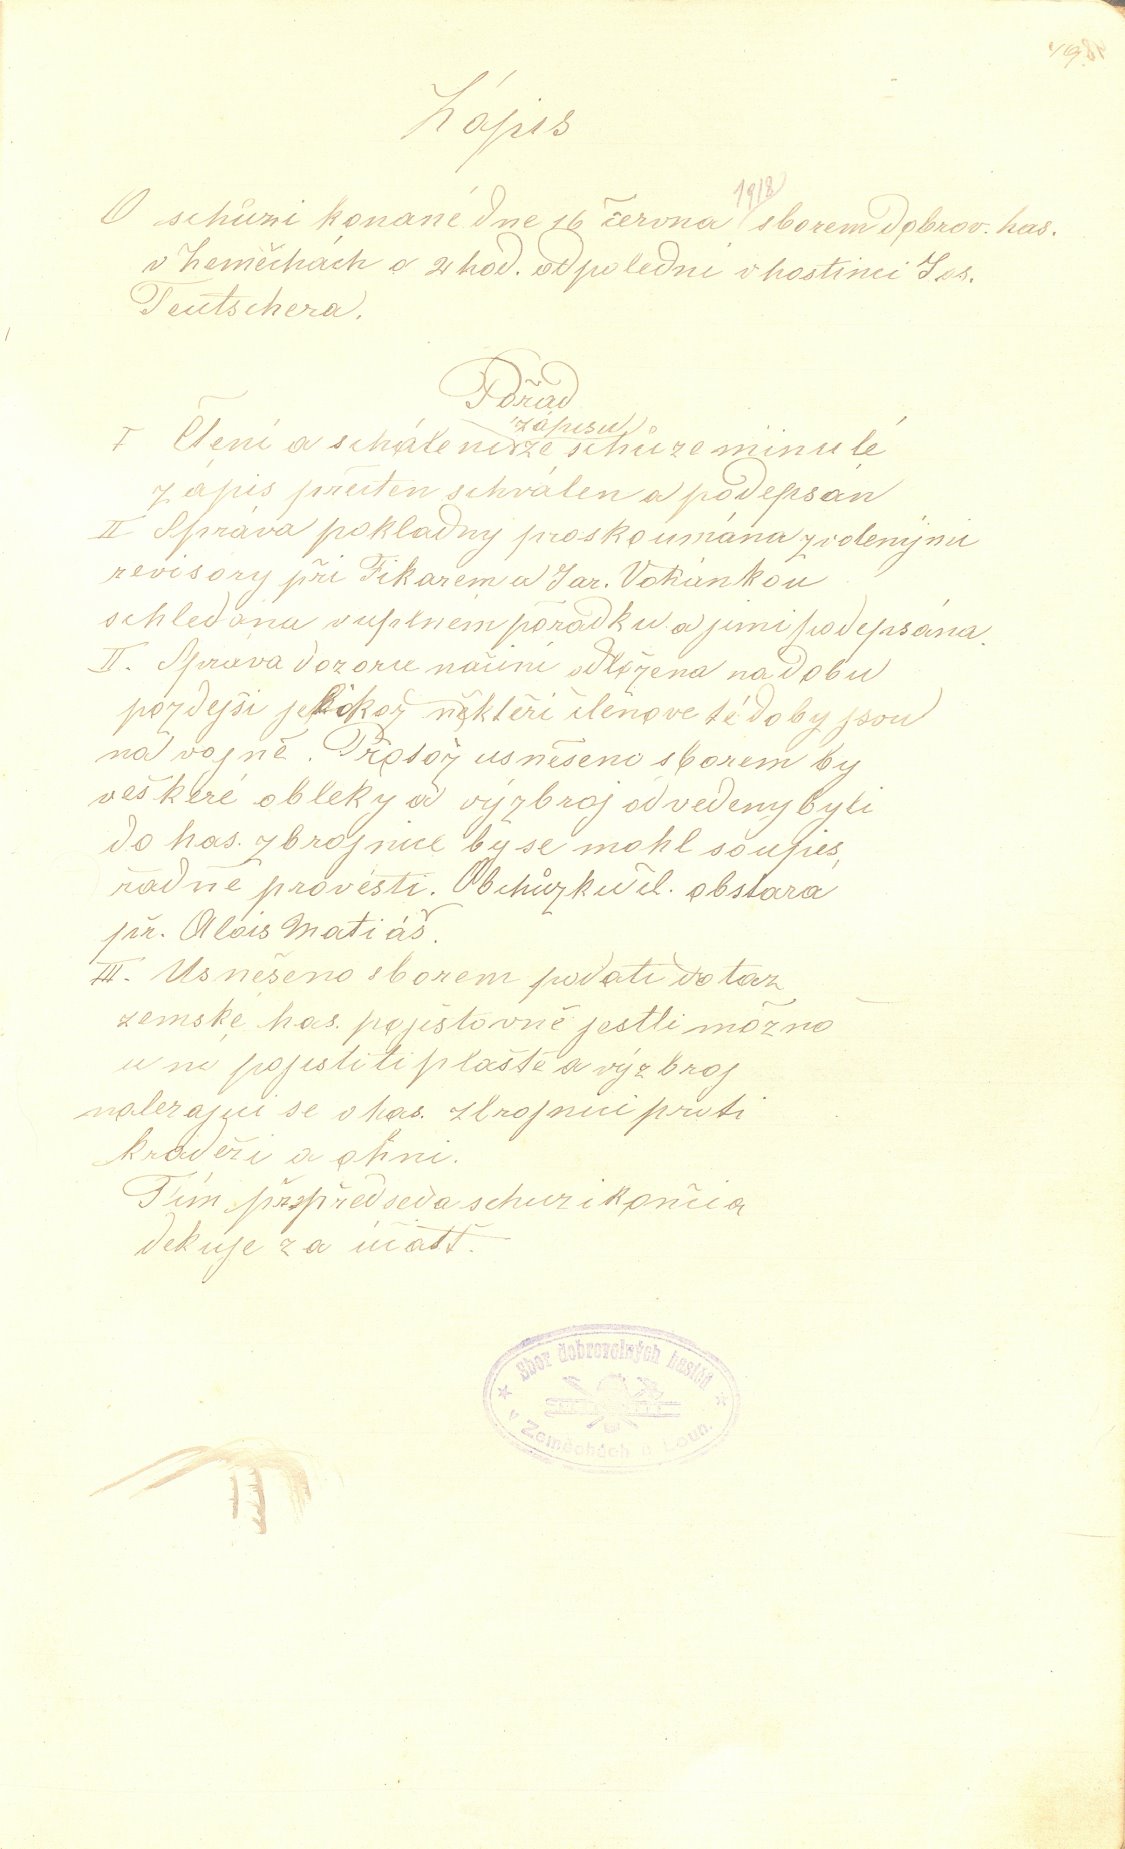 Zápis
O schůzi konané dne 16 června 1918 sborem dobrov. has.
v Zeměchách o 2 hod. odpolední v hostinci Jos.
Teutschera.
Pořad
I Čtení a schálení zápisu ze schůze minulé
zápis přečten schválen a podepsán
II Správa pokladny proskoumána zvolenými
revisory při Fikarem a Jar. Vokánkou
schledána v uplném pořádku a jimi podepsána.
II. Správa dozorce náčiní odložena na dobu
pozdejší jelikož někteří členove té doby jsou
na vojně. Protož usnešeno sborem by
veškeré obleky a výzbroj odvedeny byli
do has. zbrojnice by se mohl soupis
řádně provésti. Obchůzku čl. obstará
př. Alois Matiáš.
III. Usnešeno sborem podati dotaz
zemské has. pojišťovně jestli možno
u ní pojistiti pláště a výzbroj
nalezající se v has. zbrojnici proti
krádeži a ohni.
Tím předseda schuzi končí a
dekuje za účast.
Sbor dobrovolných hasičů
v Zeměchách u Loun.